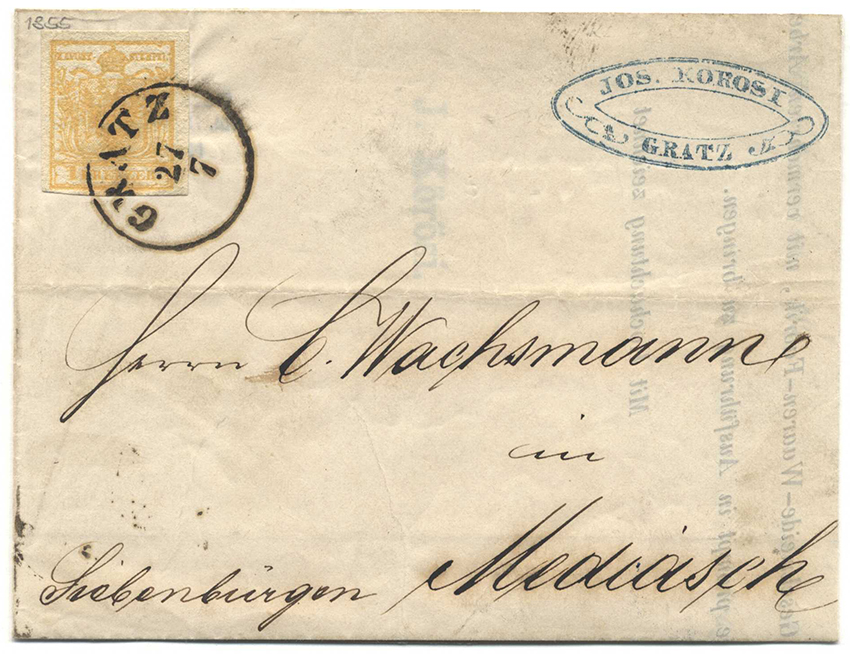 1855
GRATZ
27
7
JOS. KOROSI
GRATZ
Herrn C. Wachsmann
in
Mediasch
Siebenbürgen